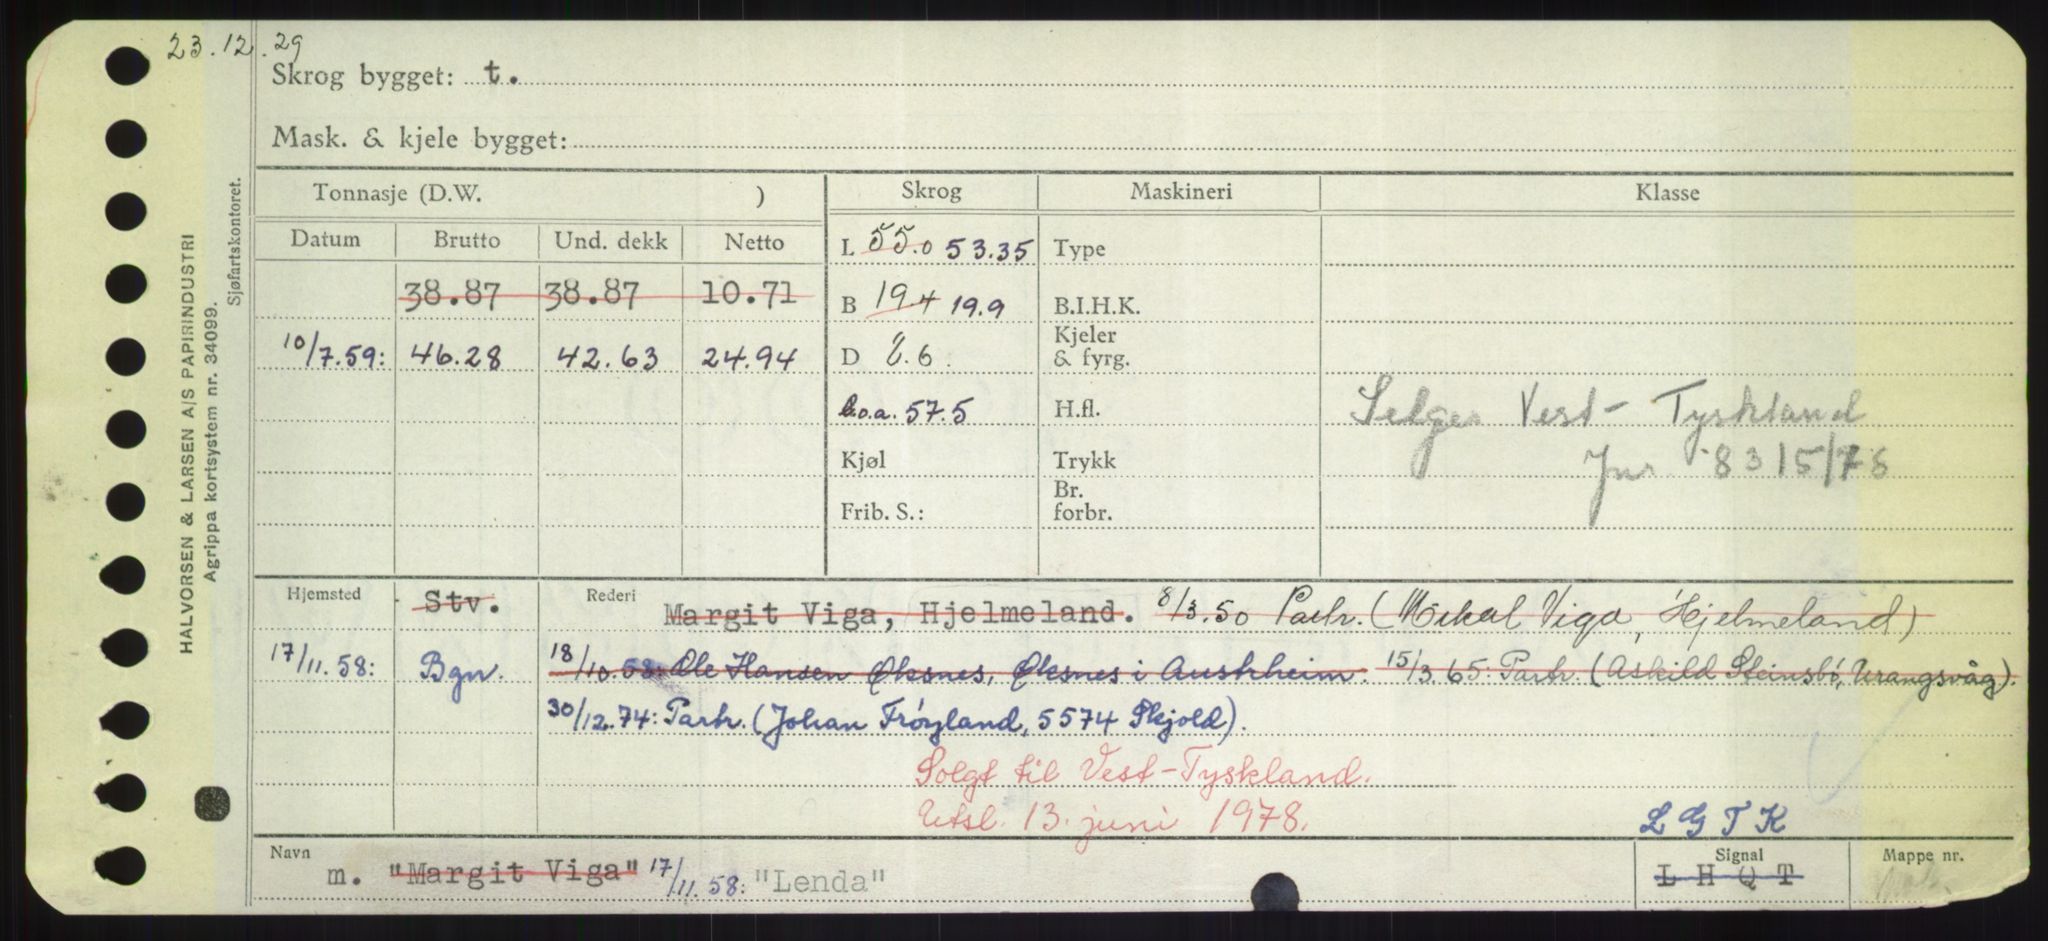 23.12.29
Skrog bygget: t.
Mask. & kjele bygget:
HALVORSEN & LARSEN A/S PAPIRINDUSTRI
Agrippa kortsystem nr. 34099.
Sjøfartskontoret.
Tonnasje (D.W. ) Skrog Maskineri Klasse
Datum Brutto Und. dekk Netto L 55.0 53.35 Type
38.87 38.87 10.71 B 19.4 19.9 B.I.H.K.
10/7.59: 46.28 42.63 24.94 D 8.6 Kjeler & fyrg.
l.o.a. 57.5 H.fl. Selges Vest-Tyskland
Kjøl Trykk Jnr 8315/78
Frib. S.: Br. forbr.
Hjemsted Stv. Rederi Margit Viga, Hjelmeland. 8/3.50 Partr. (Mikal Viga, Hjelmeland)
17/11.58: Bgn. 18/10.58: Ole Hansen Øksnes, Øksnes i Austrheim. 15/3.65: Partr. (Askild Steinsbø, Urangsvåg).
30/12.74: Partr. (Johan Frøyland, 5574 Skjold).
Solgt til Vest-Tyskland.
Utsl. 13. juni 1978.
LGTK
Navn m. "Margit Viga" 17/11.58: "Lenda" Signal LHQT Mappe nr.